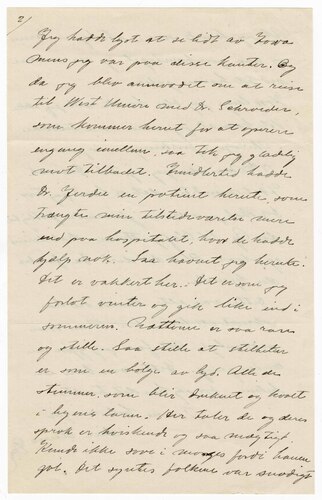 2/
Jeg hadde lyst at se lidt av Iowa
mens jeg var paa disse kanter. Og
da jeg blev anmodet om at reise
til West Union med Dr. Schroeder,
som kommer herut for at operere
engang imellem, saa tok jeg glædelig
mot tilbudet. Imidlertid hadde
Dr. en patient herute, som
trængte min tilstedeværelse mere
end paa hospitalet, hvor de hadde
hjælp nok. Saa havnet jeg herute.
Det er vakkert her. Det er som jeg
forlot vinter og gik like ind i
sommeren. Nætterne er saa rare
og stille. Saa stille at stilheten
er som en bølge av lyd. Alle de
stemmer, som blir druknet og kvalt
i byens larm. Her taler de og deres
sprok er hviskende og saa mægtigt.
Kunde ikke sove i morges fordi hanen
gol. Det syntes folkene var snodigt